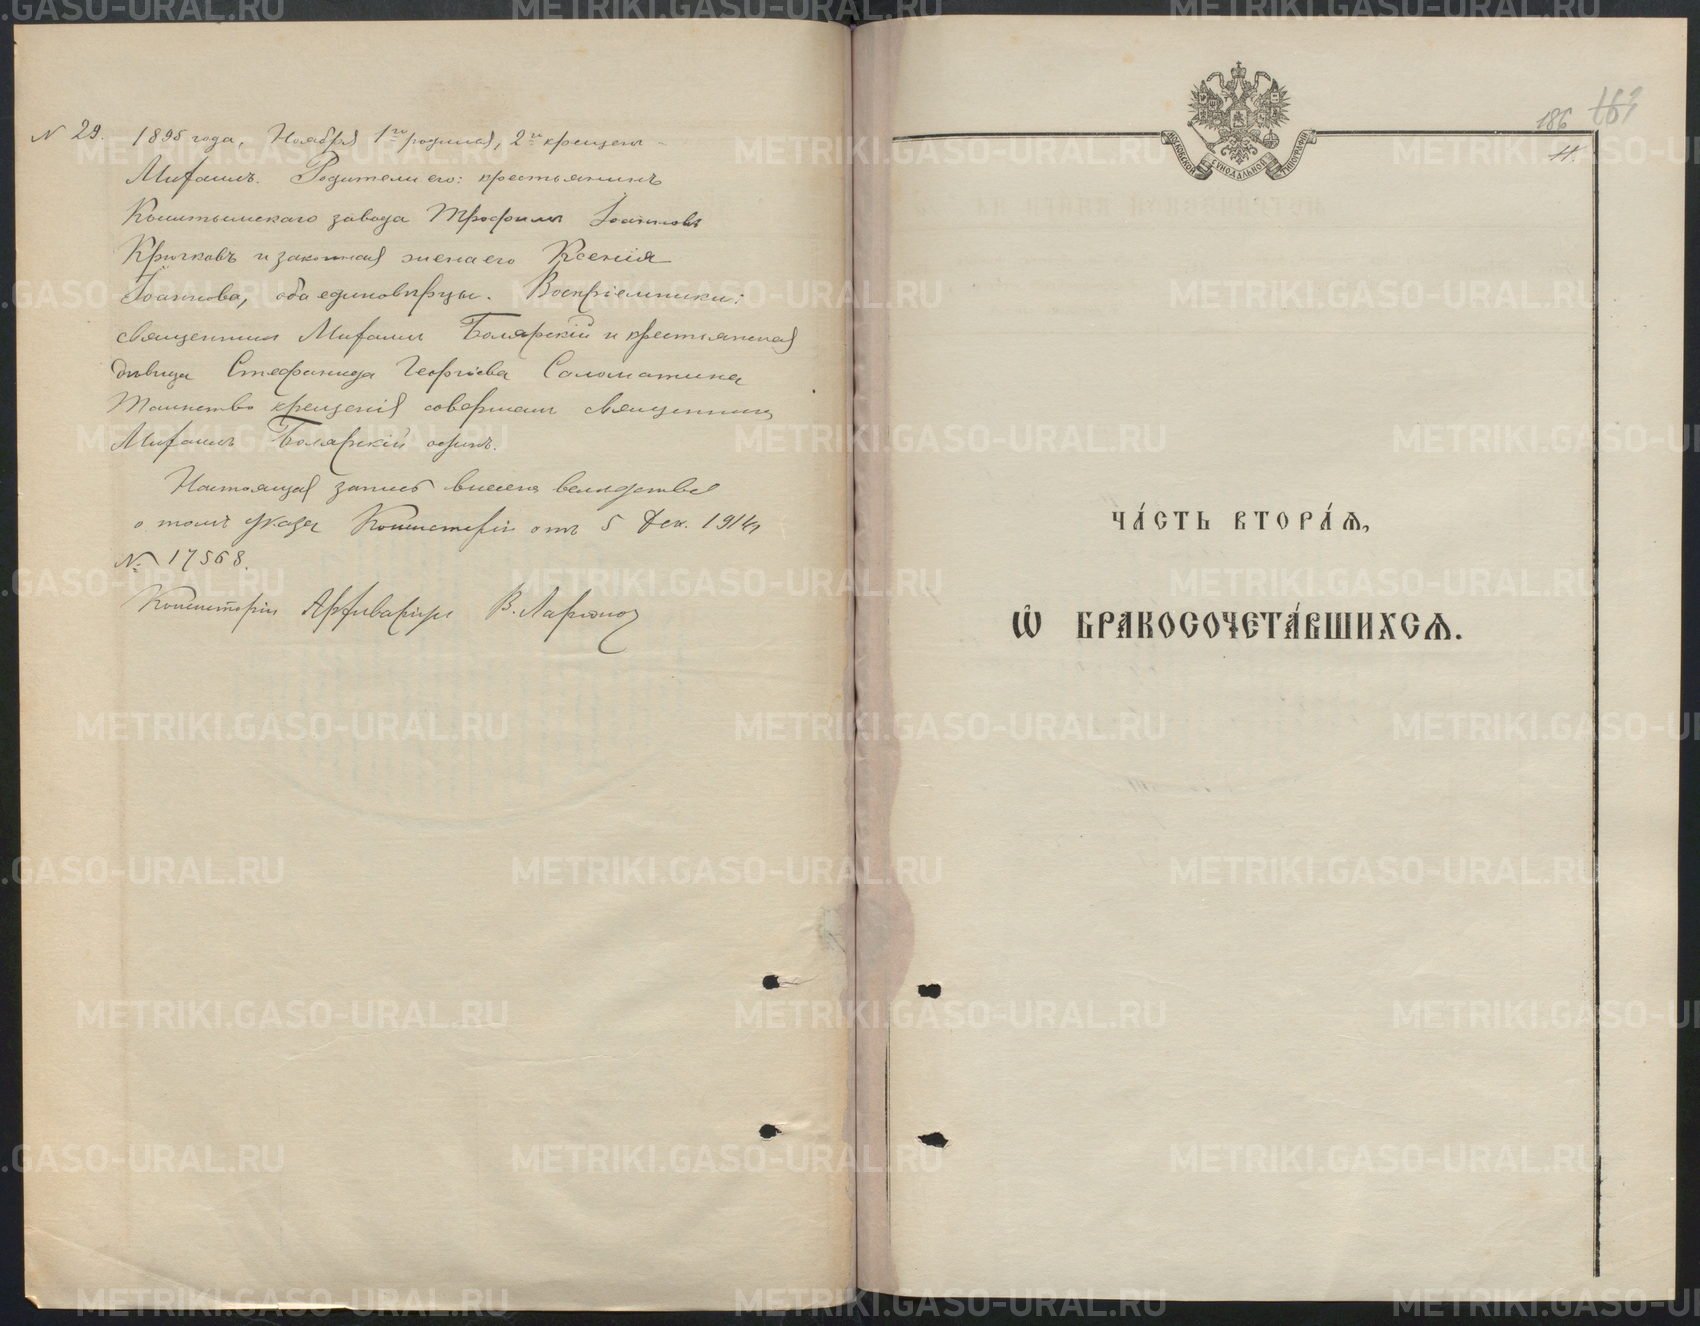 № 29. 1895 года, Ноября 1го родился, 2го крещенъ
Михаилъ. Родители его: крестьянинъ
Кыштымскаго завода Трофимъ Іоанновъ
Крючковъ и законная жена его Ксенія
Іоаннова, оба единовѣрцы. Воспріемники:
священникъ Михаилъ Болярскій и крестьянская
дѣвица Стефанида Георгіева Саломатина
Таинство крещенія совершалъ священникъ
Михаилъ Болярскій одинъ.
Настоящая запись внесена вслѣдствіе
о томъ указа Консисторіи отъ 5 Дек. 1914
№ 17568.
Консисторіи Архиваріусъ В.
186 161
11.
МОСКОВСКОЙ СѴНОДАЛЬНОЙ ТИПОГРАФІИ
ЧА́СТЬ ВТОРА́Ѧ,
Ѡ҆ БРАКОСОЧЕТА́ВШИХСѦ.
METRIKI.GASO-URAL.RU